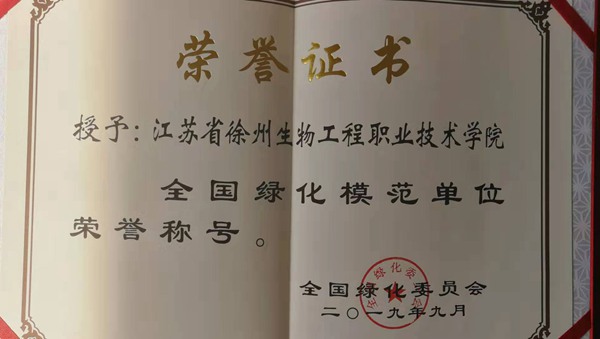 荣誉证书
授予：江苏省徐州生物工程职业技术学院
全国绿化模范单位
荣誉称号。
全国绿化委员会
二〇一九年九月